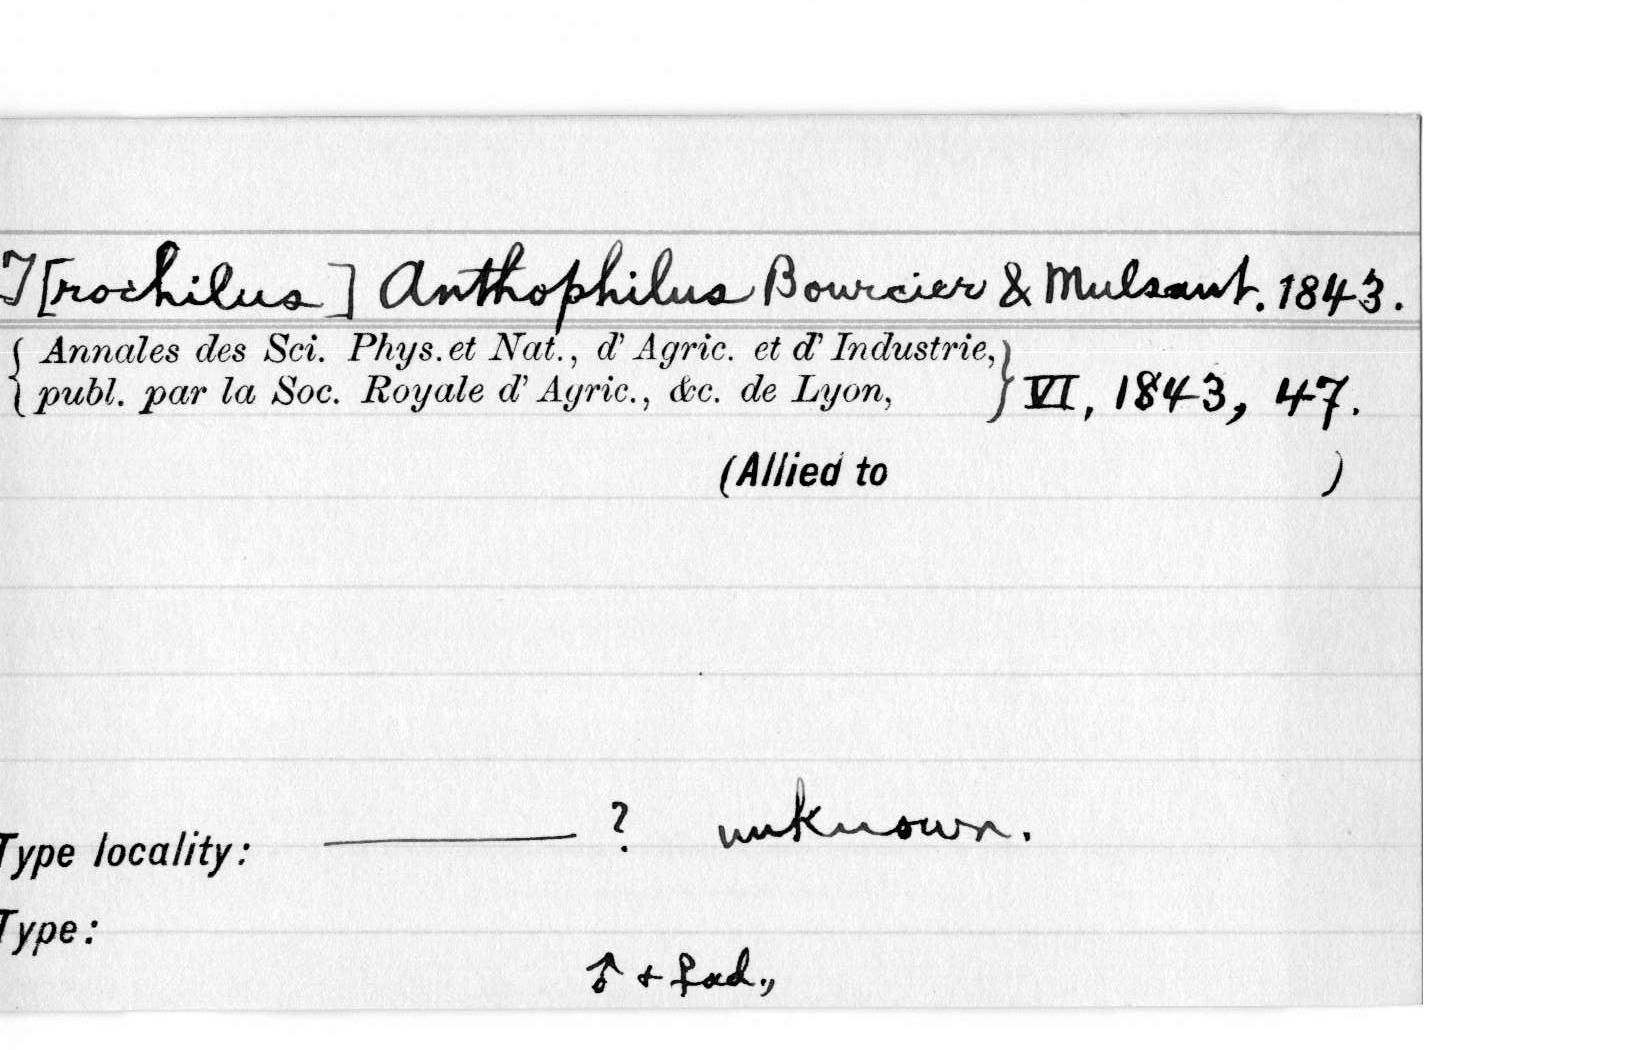 T[rochilus] Anthophilus Bourcier & Mulsant. 1843.
{ Annales des Sci. Phys. et Nat., d' Agric. et d' Industrie,
publ. par la Soc. Royale d' Agric., &c. de Lyon, } VI, 1843, 47.
(Allied to )
Type locality: ——— ? unknown.
Type:
♂ + ♀ ad.,